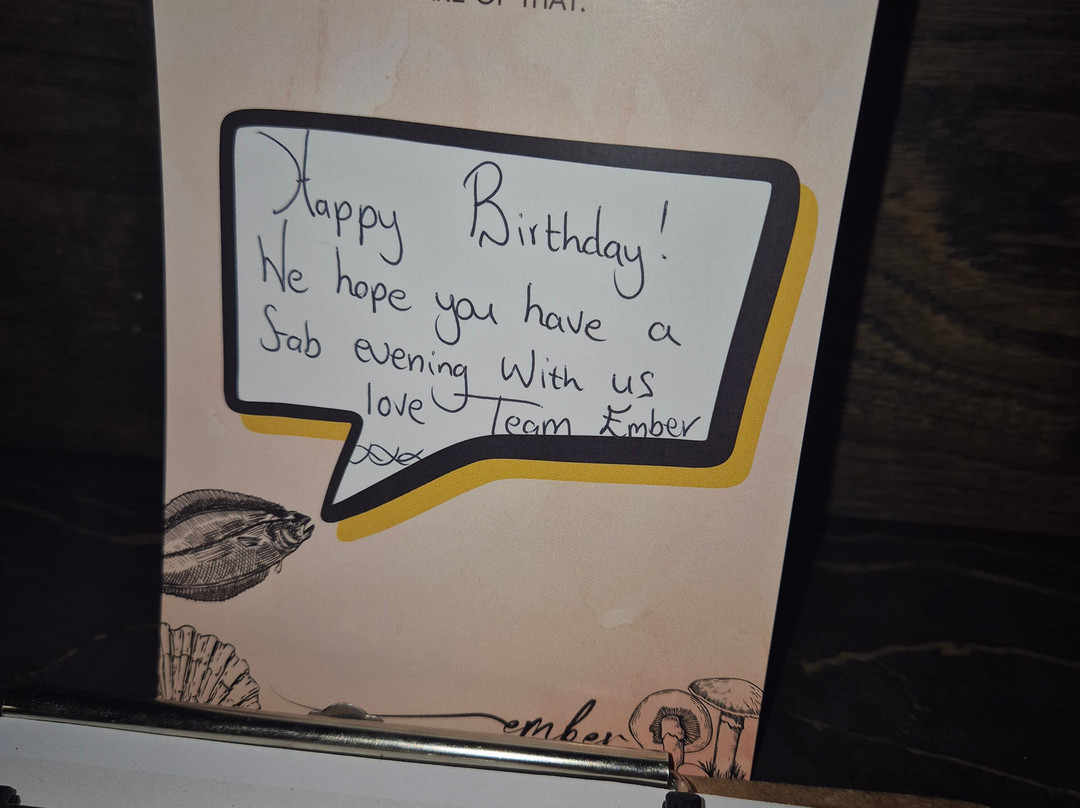 OF THAT.
Happy Birthday!
We hope you have a
fab evening With us
love Team Ember
xxx
ember